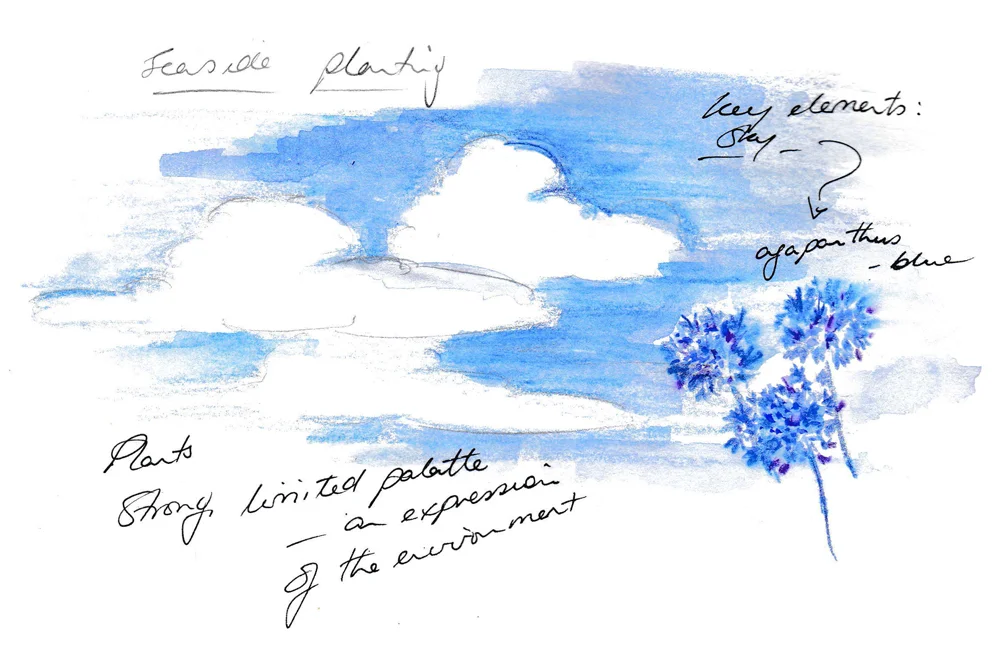 Seaside planting
key elements:
Sky –
agapanthus
- blue
Plants
Strong, limited palatte
– an expression
of the environment